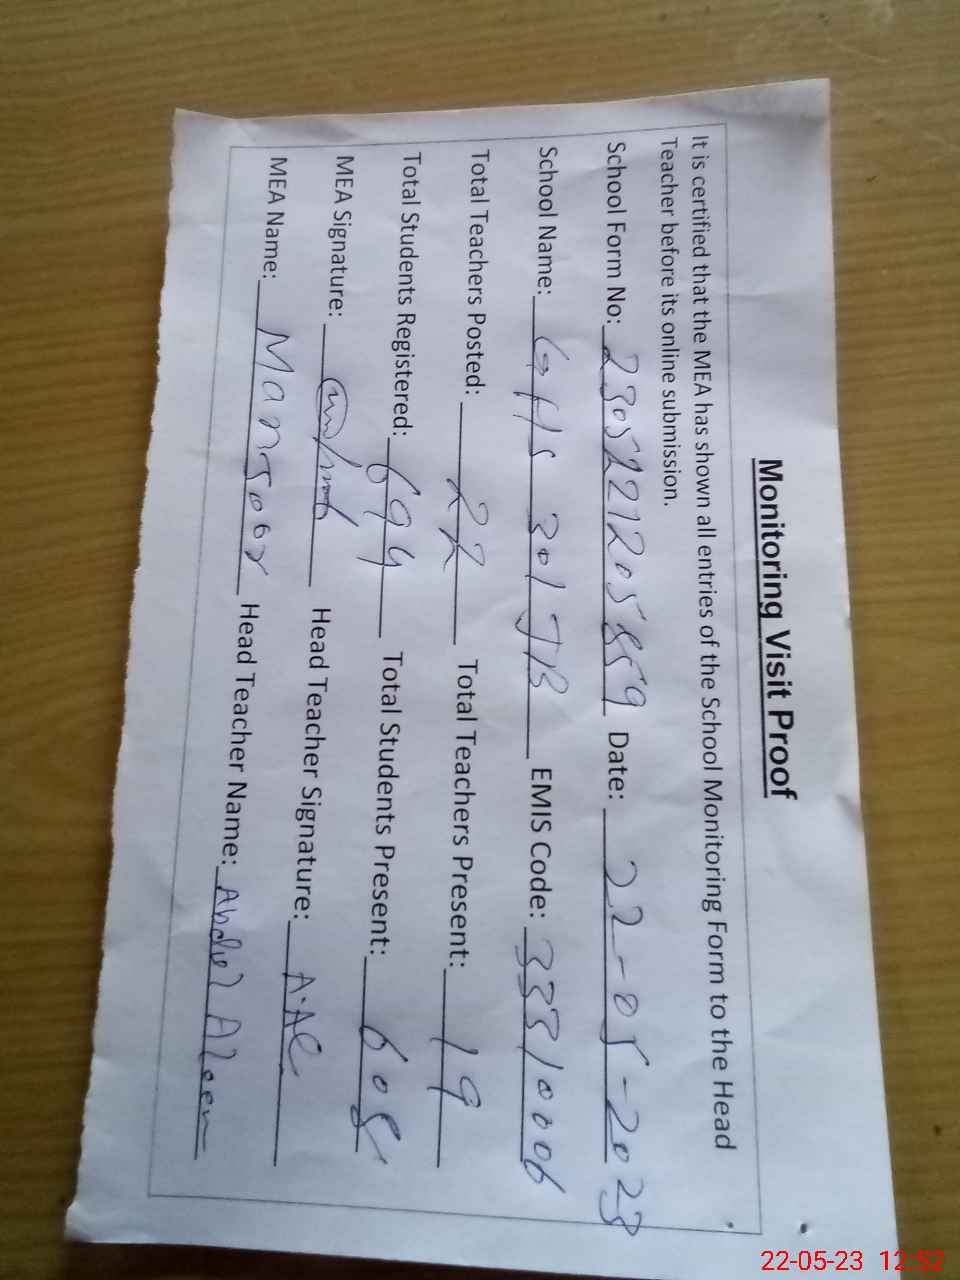 Monitoring Visit Proof
It is certified that the MEA has shown all entries of the School Monitoring Form to the Head
Teacher before its online submission.
School Form No: 23052212058859 Date: 22-05-2023
School Name: GHS 301 JB EMIS Code: 33310006
Total Teachers Posted: 22 Total Teachers Present: 19
Total Students Registered: 694 Total Students Present: 605
MEA Signature: Head Teacher Signature: A.Ae
MEA Name: Mansoor Head Teacher Name: Abdul Aleem
22-05-23 12:52